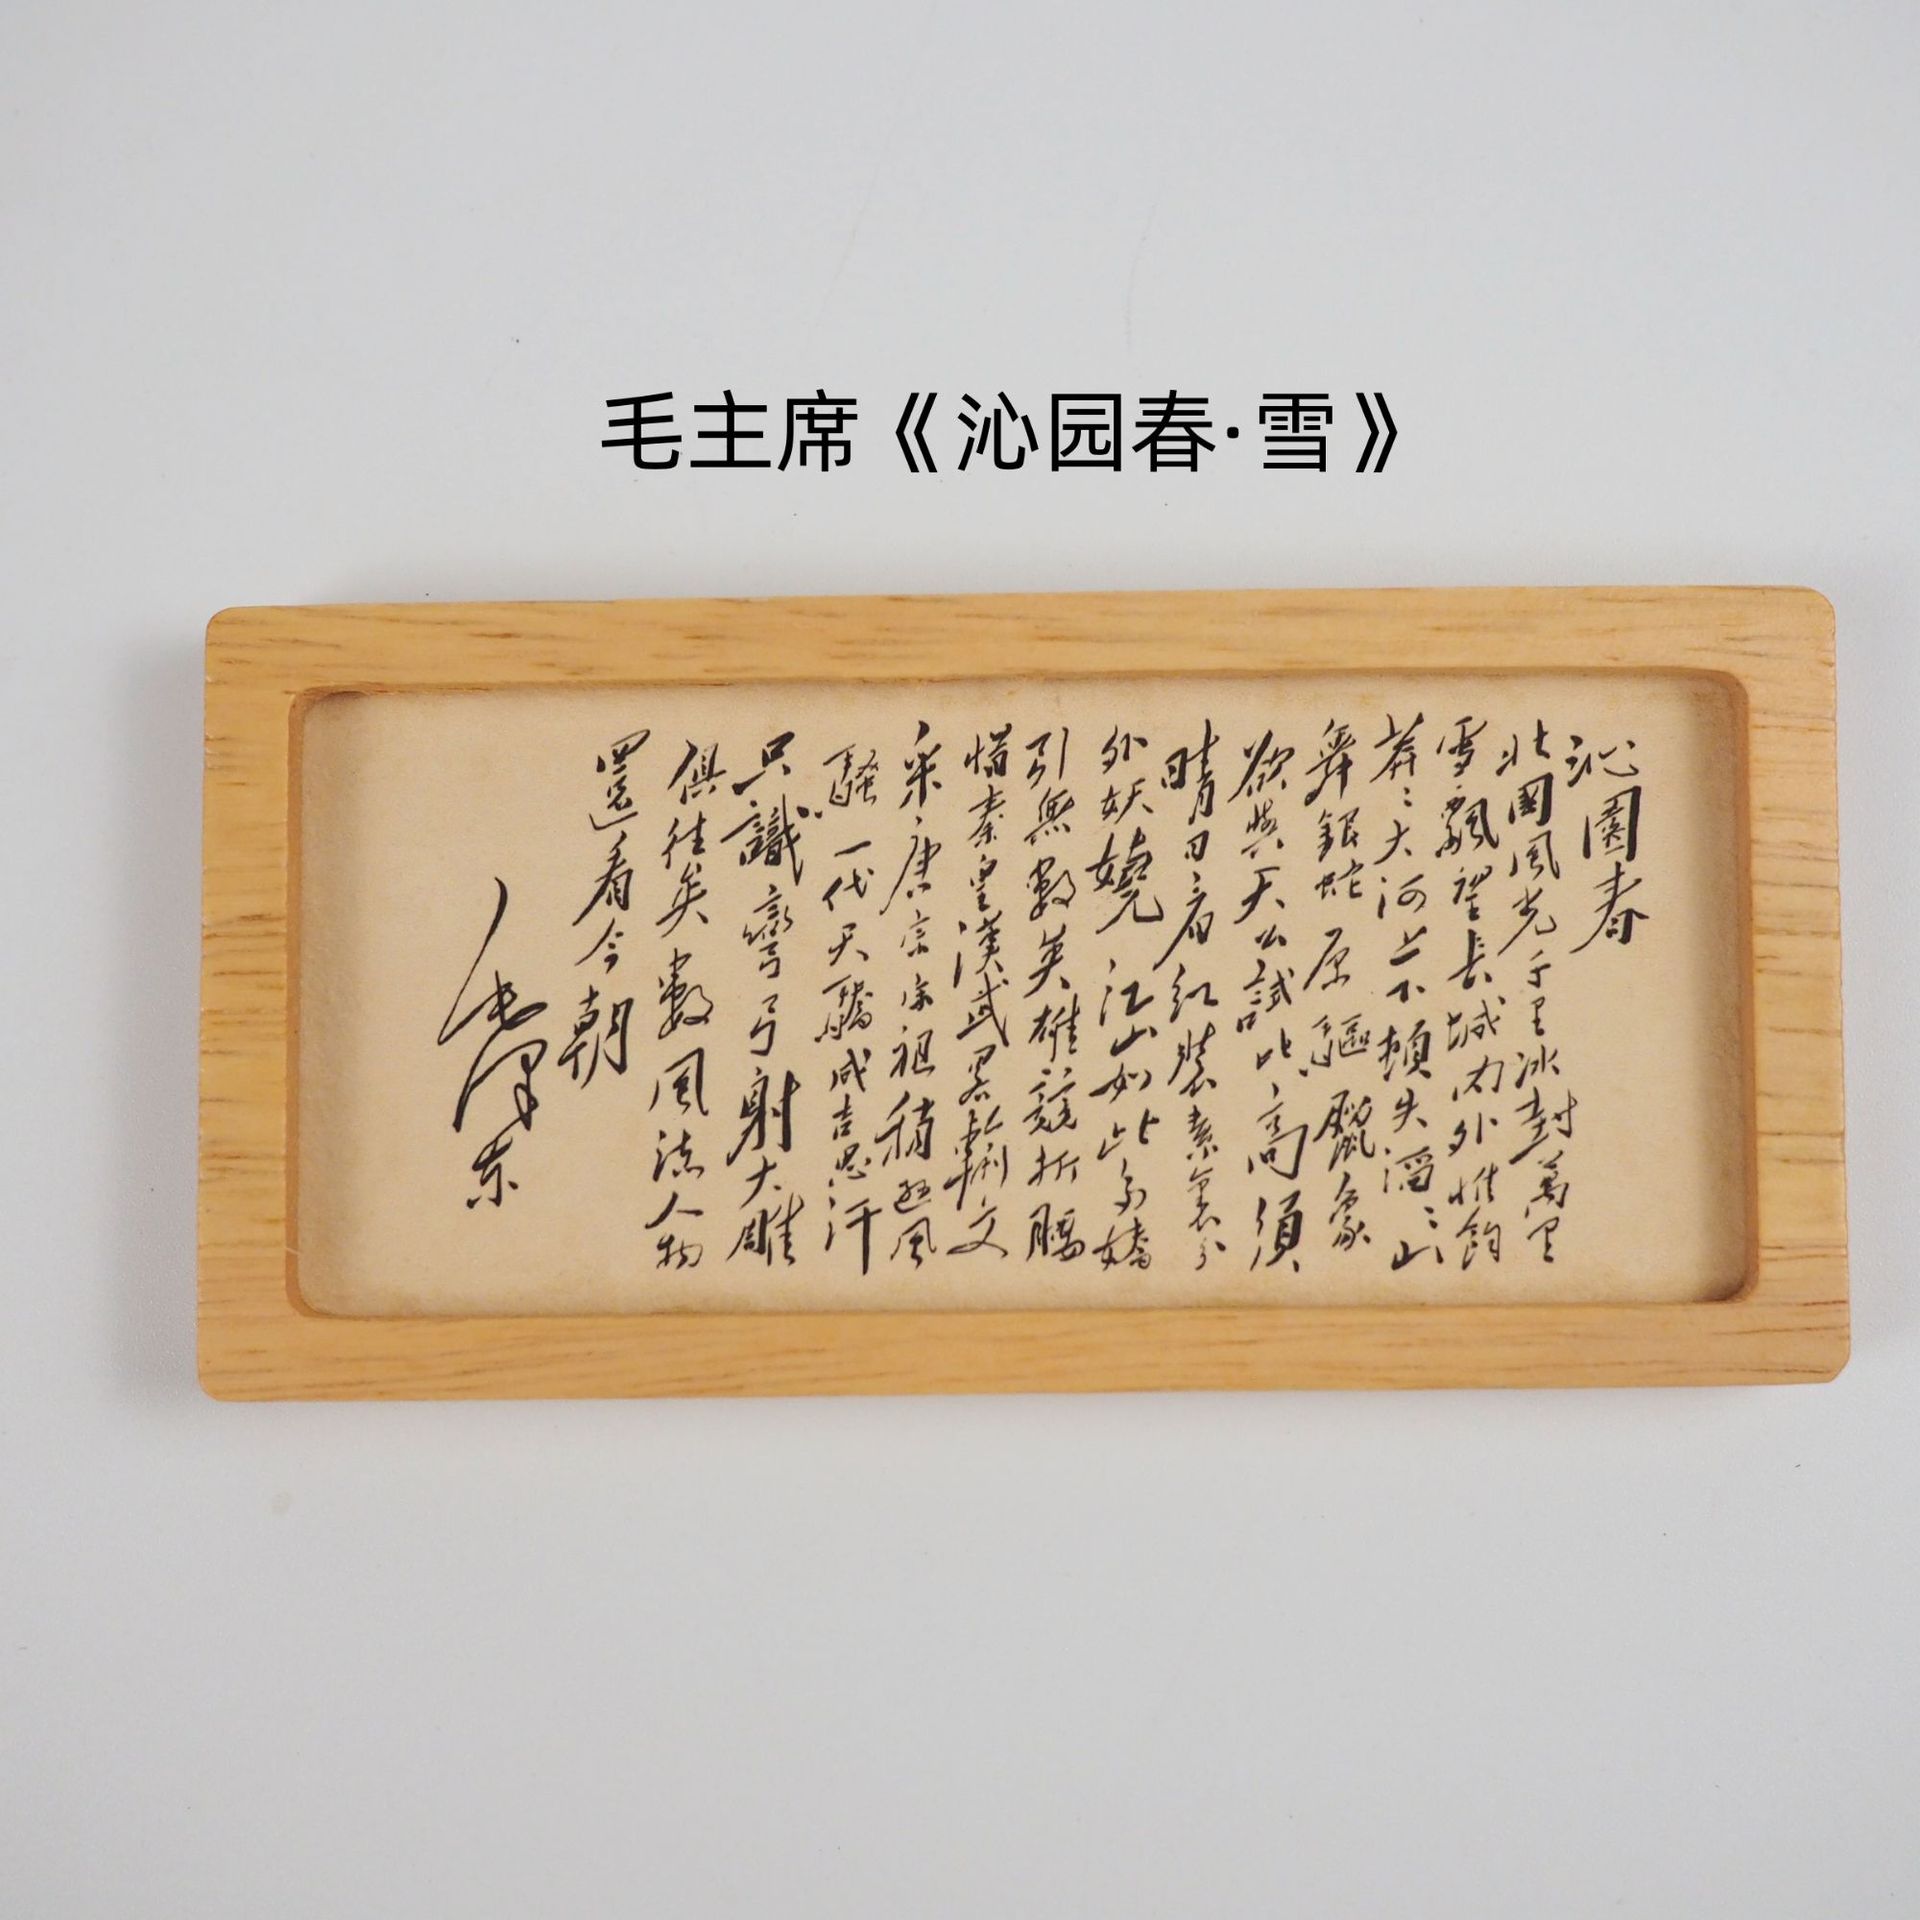 毛主席《沁园春·雪》
沁園春
北國風光千里冰封萬里
雪飄望長城內外惟餘
莽〻大河上下頓失滔〻山
舞銀蛇原驅臘象
欲與天公試比高須
晴日看紅裝素裹分
外妖嬈江山如此多嬌
引無數英雄競折腰
惜秦皇漢武略輸文
采唐宗宋祖稍遜風
騷一代天驕成吉思汗
只識彎弓射大雕
俱往矣數風流人物
還看今朝
毛澤东